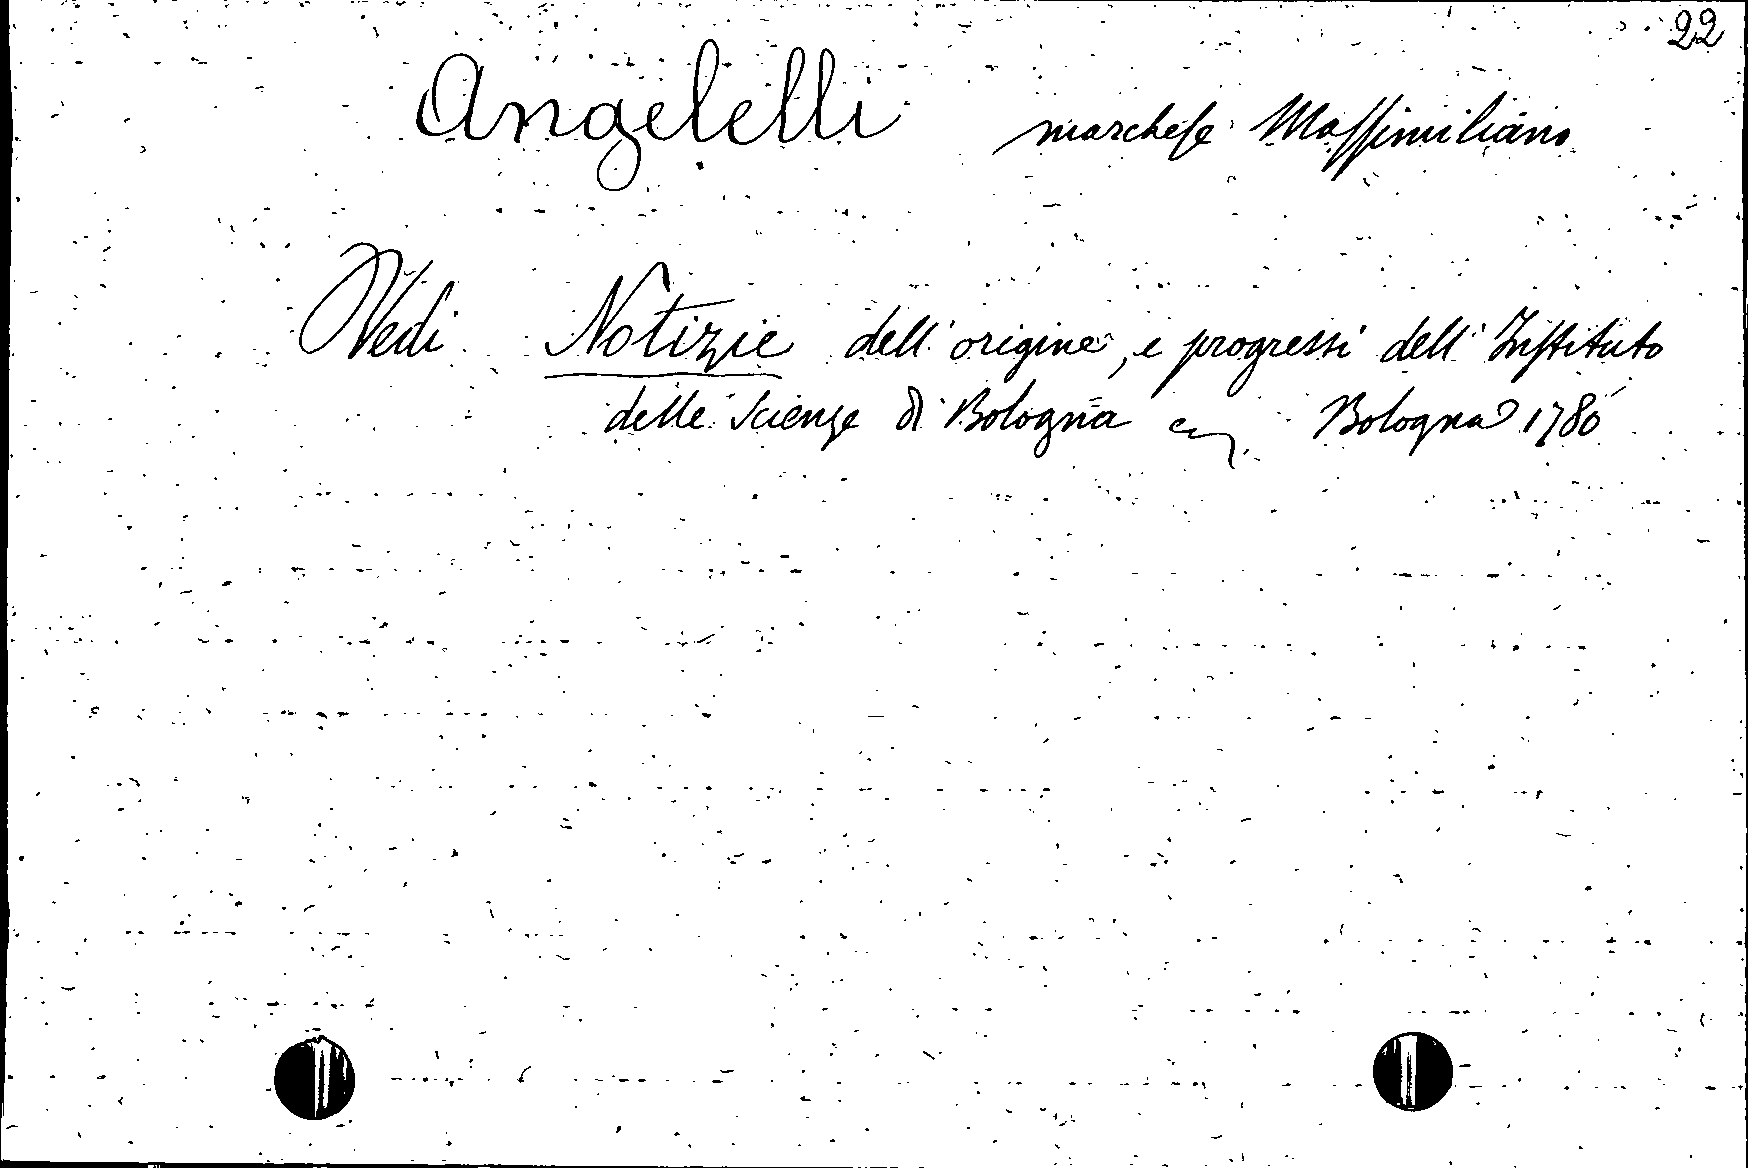 22
Angelelli marchese Massimiliano
Vedi Notizie dell'origine, e progressi dell'Instituto
delle Scienze di Bologna Bologna 1780